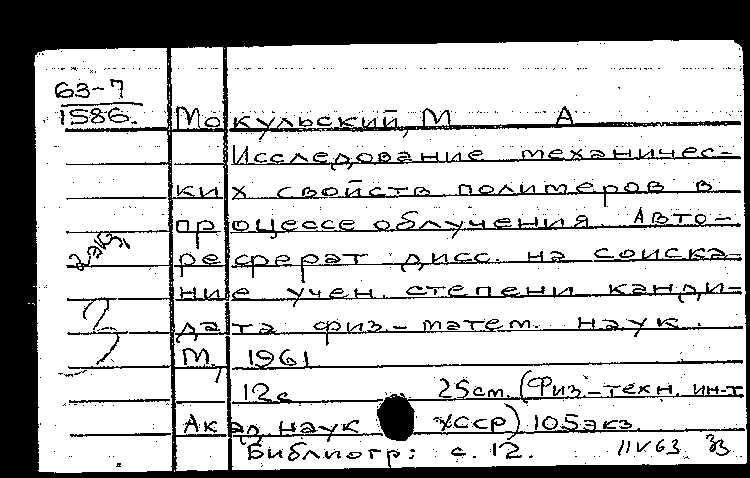 63-7
1586.
Мокульский, М А
Исследование механичес-
ких свойств полимеров в
процессе облучения. Авто-
2 экз.
реферат дисс. на соиска-
ние учен. степени канди-
дата физ.-матем. наук.
М., 1961
12с 25cm. (Физ-техн. ин-т
Акад. наук УССР) 105экз.
Библиогр: с. 12. 11 V 63